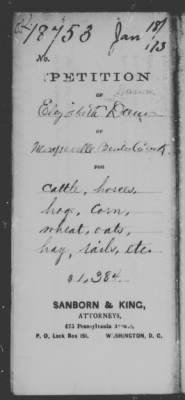 18753 Jan 18/73
No.
PETITION
OF
Elizabeth Dawson
OF
FOR
cattle, horses,
hogs, corn,
wheat, oats,
hay, rails, etc.
$1,384.
SANBORN & KING,
ATTORNEYS,
475 Pennsylvania Avenue,
P. O. Lock Box 151. WASHINGTON, D. C.